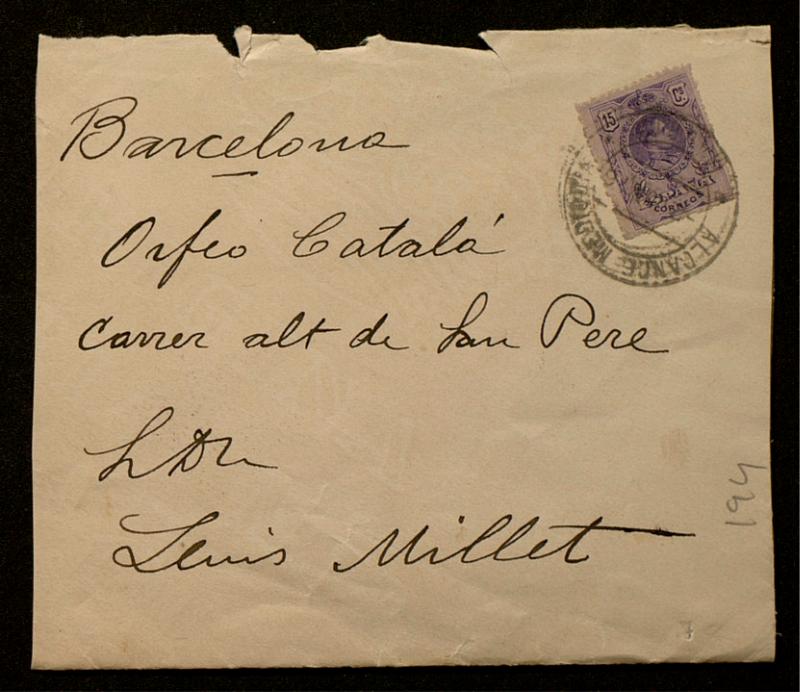 Barcelona
15 Cs
CORREOS
ALCANCE
Orfeo Catalá
Carrer alt de San Pere
Lluis Millet
194
7